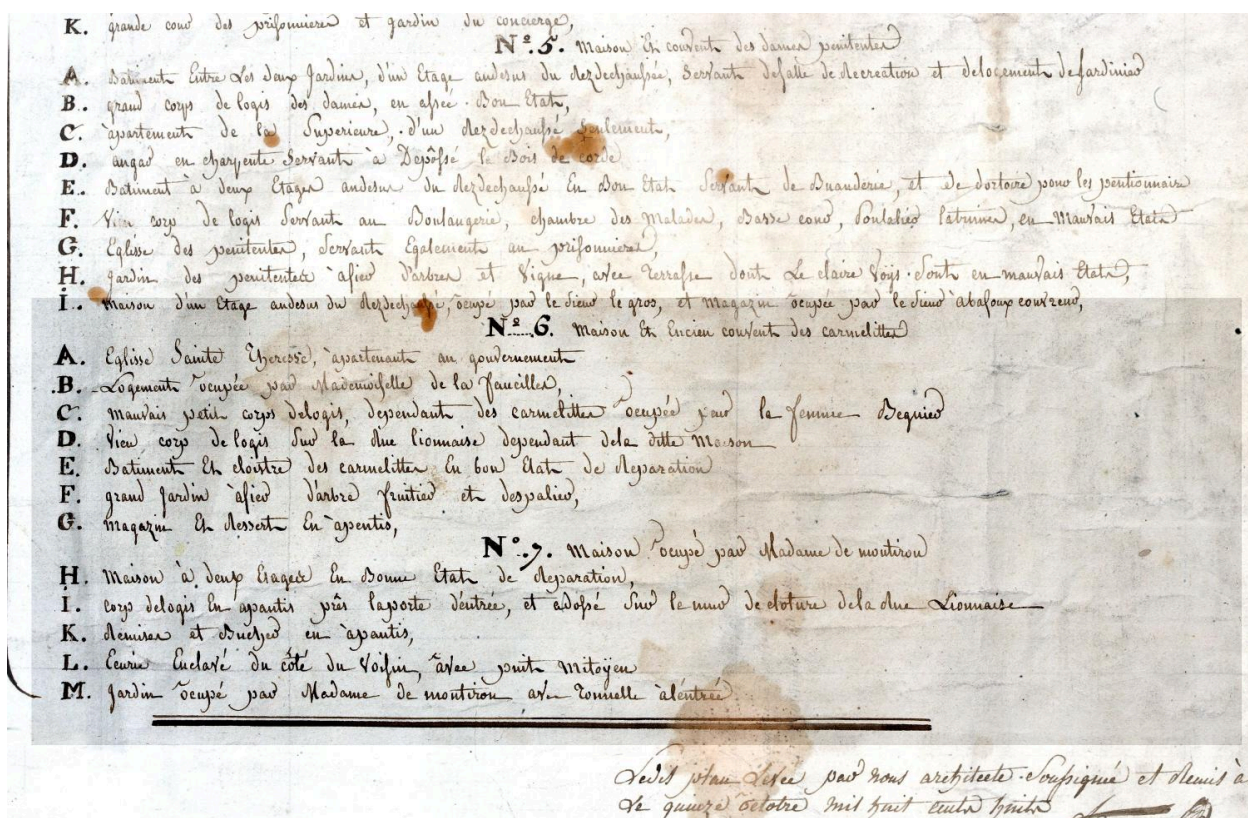 K. grande cour des prisonnieres et jardin du concierge,
Nº. 5. Maison Et couvent des dames penitentes
A. Batiment Entre Les deux Jardins, d'un Etage audesus du Rezdechaussée, Servant desalle de Recreation et delogement de Jardinier
B. grand corps de logis des dames, en assée Bon Etat,
C. apartement de la Superieure, d'un Rezdechaussé Seulement,
D. angar en charpente Servant à Depôssé le Bois de corde
E. Batiment à deux Etages audesus du Rezdechaussé En Bon Etat Servant de Buanderie, et de dortoire pour les pentionnaire
F. Vieu corp de logis Servant au Boulangerie, chambre des Malades, Basse cour, Poulalier latrinnes, en Mauvais Etats
G. Eglisse des penitentes, Servant Egalement au prisonnieres,
H. Jardin des penitentes afier d'arbres et Vigne, avec Terrasse dont Le claire Voys Sont en mauvais Etats,
I. Maison d'un Etage audesus du Rezdechaussé, ocupe par le Sieur le gros, et Magazin ocupée par le Sieur abafour couvreur,
Nº. 6. Maison Et Encien couvent des carmelittes
A. Eglisse Sainte Theresse, apartenant au gouvernement
B. Logement ocupée par Mademoiselle de la faucille,
C. Mauvais petit corps delogis, dependant des carmelittes ocupée par la femme Bequier
D. Vieu corp de logis Sur la Rue lionnaise dependant dela ditte Maison
E. Batiment Et cloistre des carmelittes En bon Etat de Reparation
F. grand Jardin afier d'arbre fruitier et despalier,
G. magazin Et dessert En apentis,
Nº. 7. Maison ocupé par Madame de montiron
H. Maison à deux Etages En Bonne Etat de Reparation,
I. corp delogis En apantis près laporte d'entrée, et adossé Sur le mur de cloture dela Rue Lionnaise
K. Remises et Bucher en apantis,
L. Ecurie Enclavé du côté du Voisin, avec puit Mitoÿen
M. Jardin ocupé par Madame de montiron avec Tonnelle aléntrée
Ledit plan Levée par nous architecte Soussigné et Remis à
Le quinze octobre mil huit cents huit